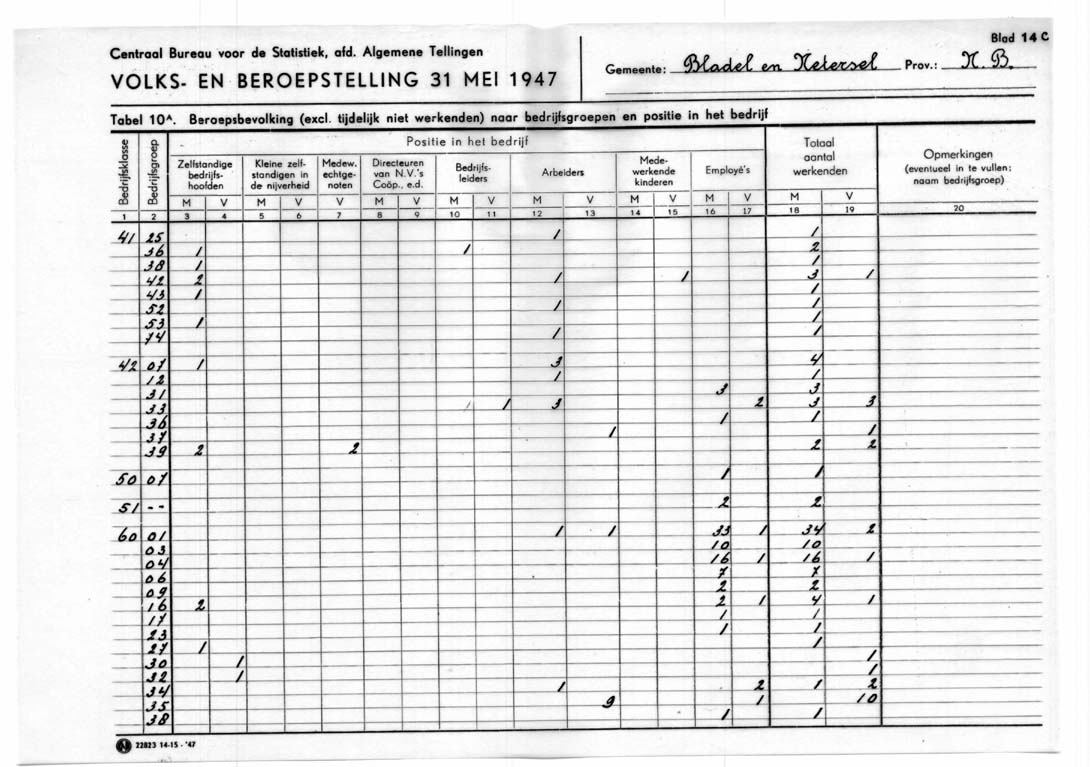 Blad 14 C
Centraal Bureau voor de Statistiek, afd. Algemene Tellingen
VOLKS- EN BEROEPSTELLING 31 MEI 1947
Gemeente: Bladel en Netersel Prov.: N. B.
Tabel 10A. Beroepsbevolking (excl. tijdelijk niet werkenden) naar bedrijfsgroepen en positie in het bedrijf
Bedrijfsklasse Bedrijfsgroep Positie in het bedrijf Totaal aantal werkenden Opmerkingen (eventueel in te vullen: naam bedrijfsgroep)
Zelfstandige bedrijfs- hoofden Kleine zelf- standigen in de nijverheid Medew. echtge- noten Directeuren van N.V.'s Coöp., e.d. Bedrijfs- leiders Arbeiders Mede- werkende kinderen Employé's
M V M V V M V M V M V M V M V M V
1 2 3 4 5 6 7 8 9 10 11 12 13 14 15 16 17 18 19 20
41 25 1 1
36 1 1 2
38 1 1
42 2 1 1 3 1
43 1 1
52 1 1
53 1 1
74 1 1
42 07 1 3 4
12 1 1
31 3 3
33 1 3 2 3 3
36 1 1
37 1 1
39 2 2 2 2
50 07 1 1
51 -- 2 2
60 01 1 1 33 1 34 2
03 10 10
04 16 1 16 1
06 7 7
09 2 2
16 2 2 1 4 1
17 1 1
23 1 1
27 1 1
30 1 1
32 1 1
34 1 2 1 2
35 9 1 10
38 1 1
N 22823 14-15 - '47